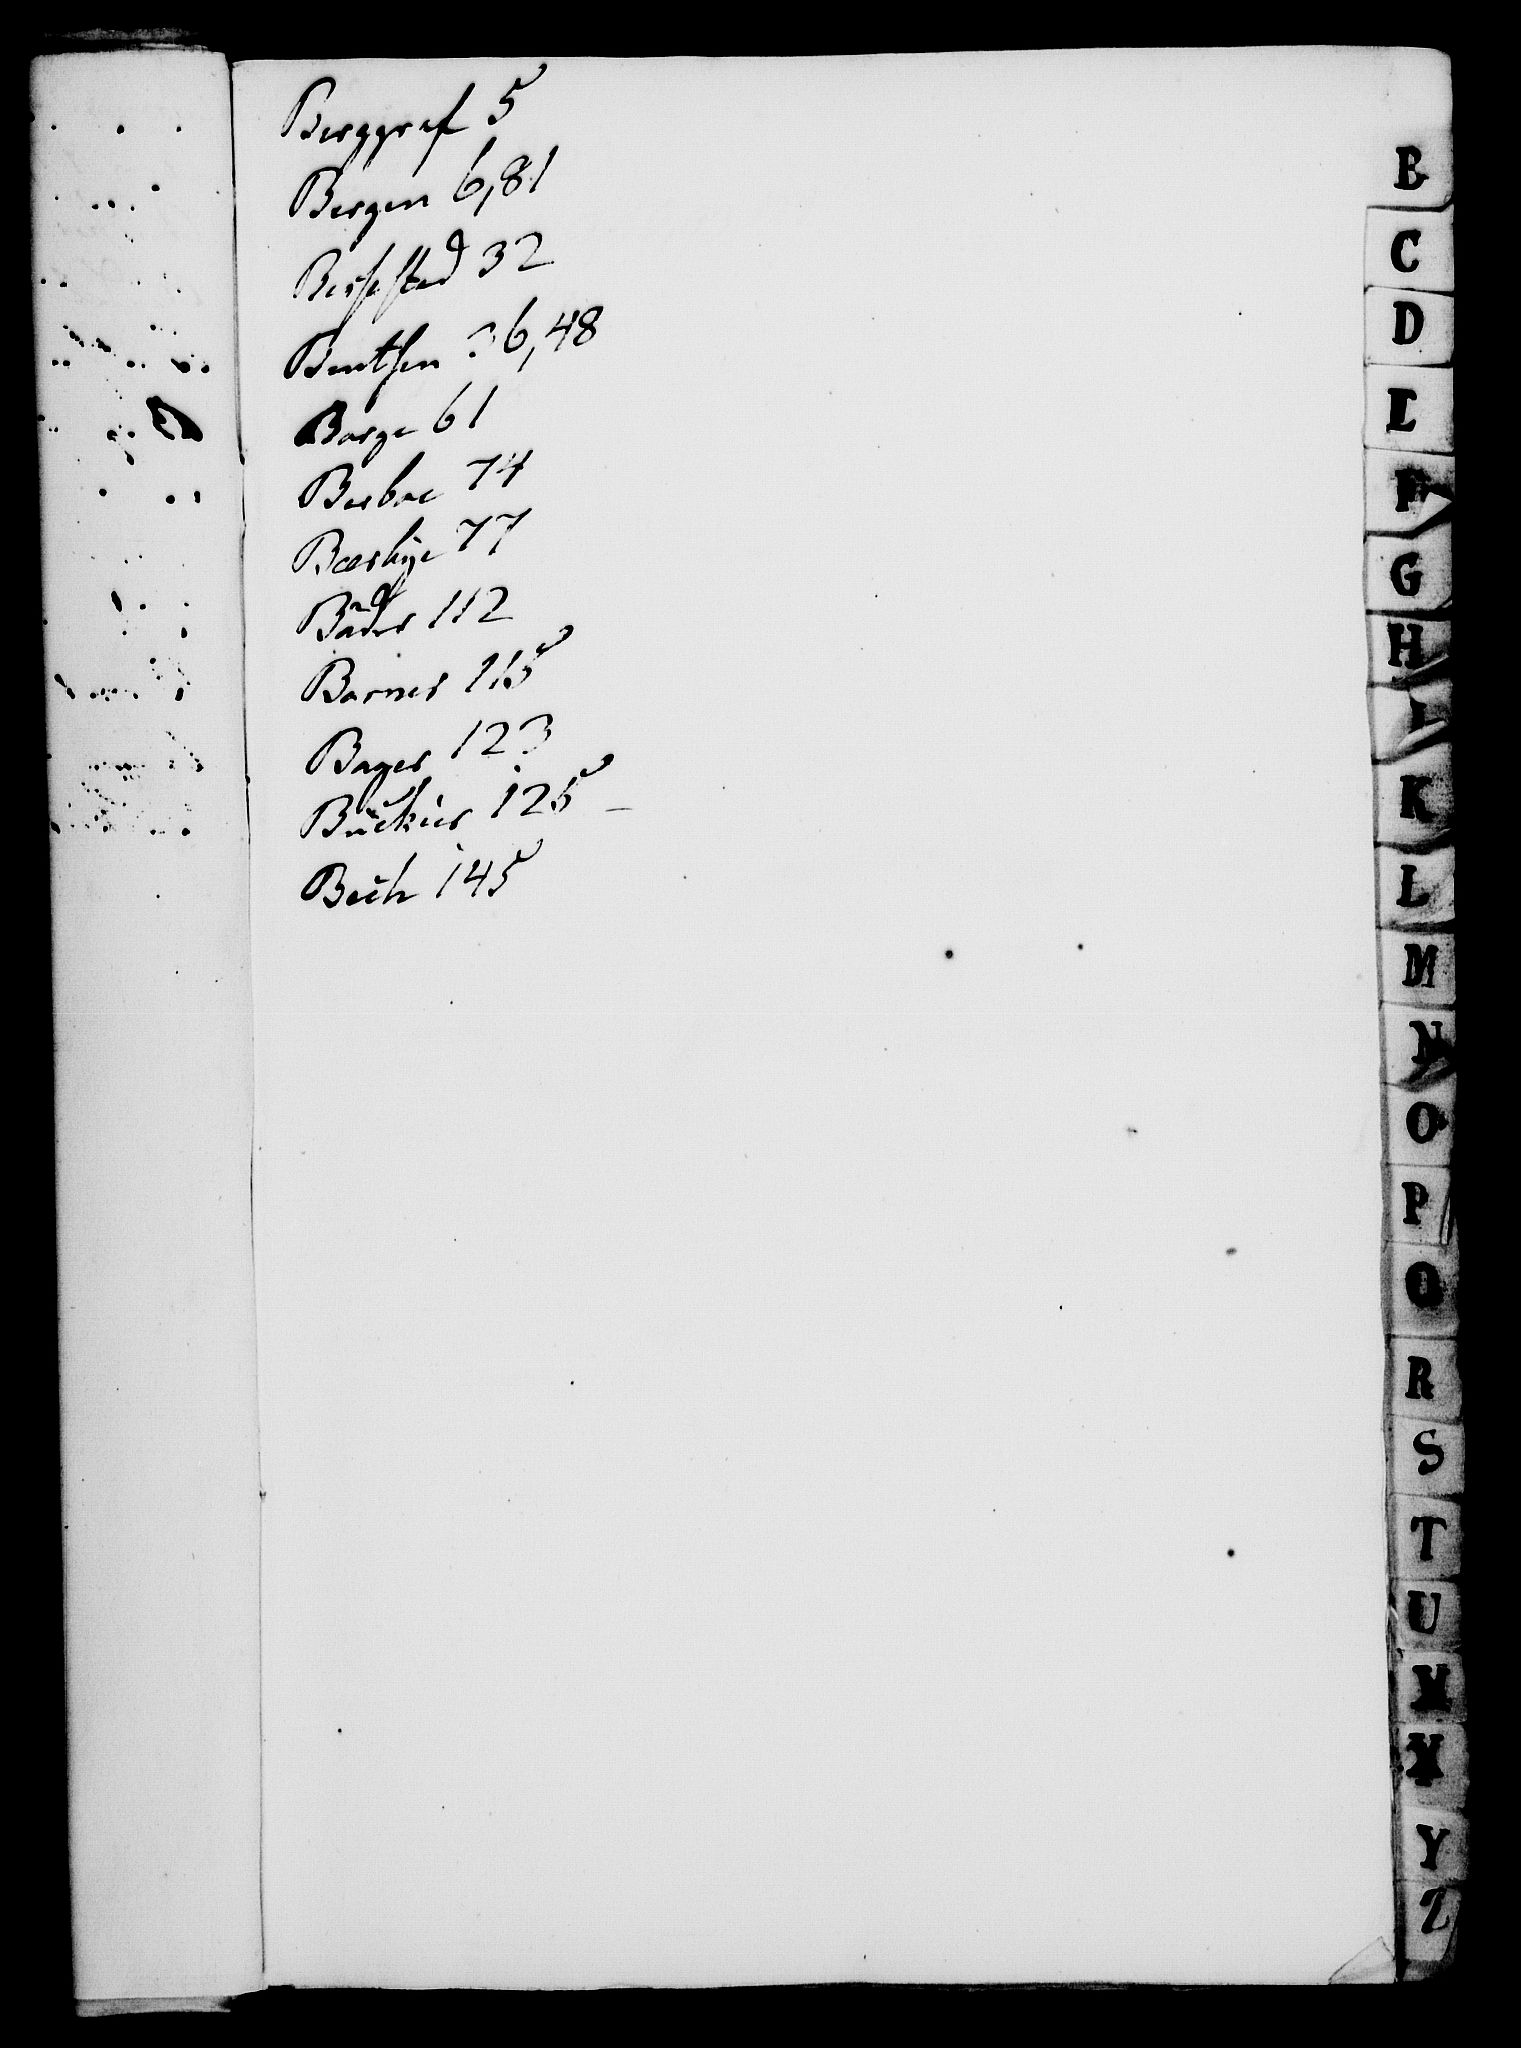 Berggraf 5
Bergen 6,81
Bessestad 32
Bentsen 36,48
Borge 61
Berboe 74
Bærbÿe 77
Båder 112
Barner 115
Bager 123
Bückier 125 –
Bech 145
B
C
D
E
F
G
H
I
K
L
M
N
O
P
Q
R
S
T
U
X
Y
Z